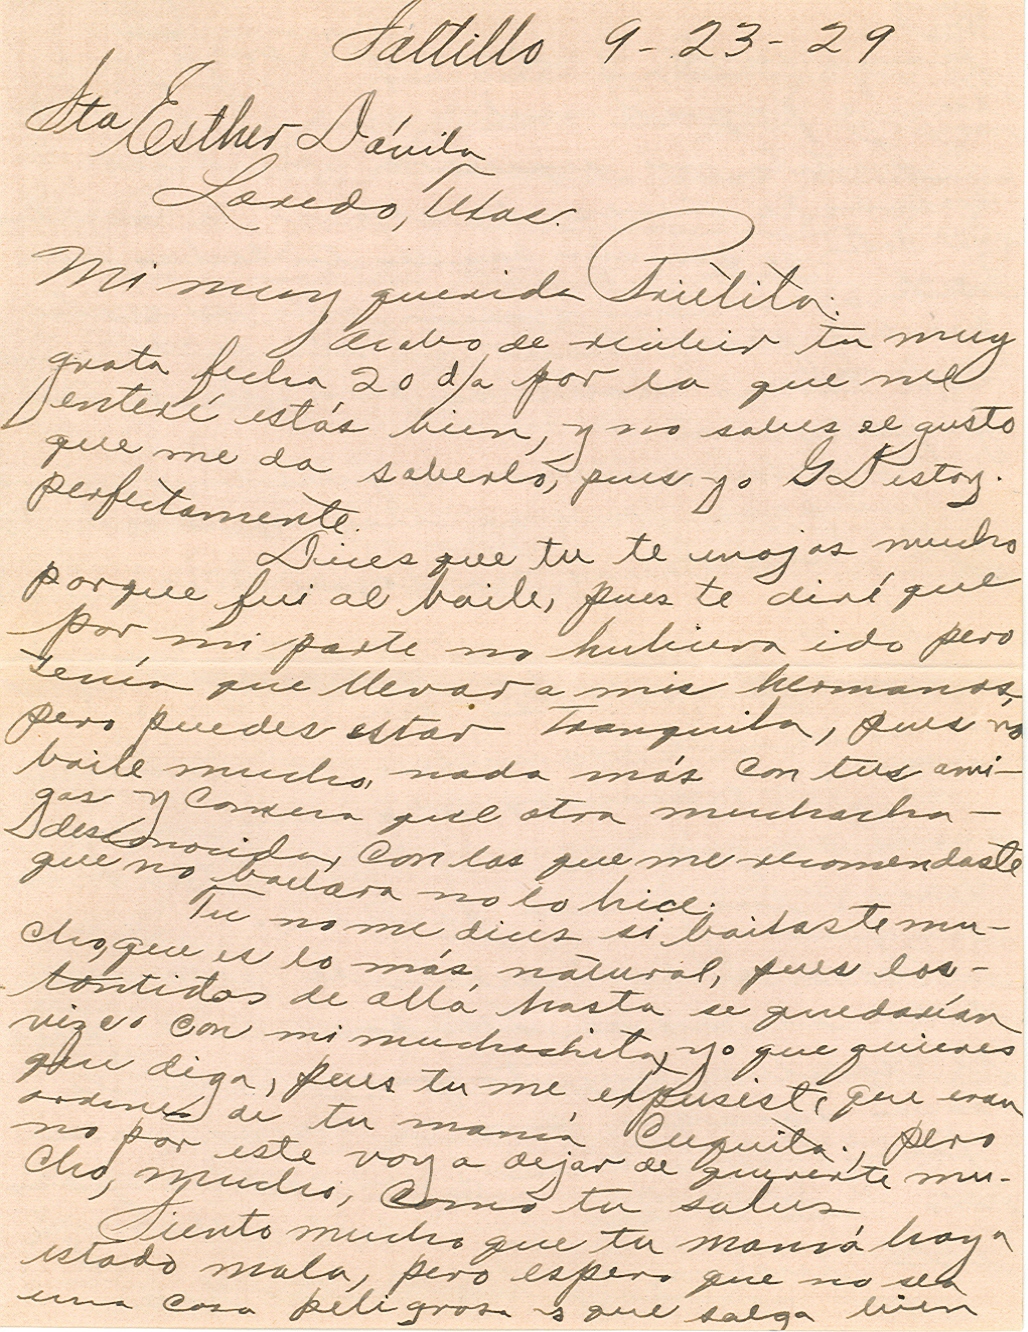 Saltillo 9-23-29
Sta Esther Dávila
Laredo, Texas.
Mi muy querida Prietita:
Acabo de recibir tu muy
grata fecha 20 d/a por la que me
enteré estás bien, y no sabes el gusto
que me da saberlo, pues yo G D estoy
perfectamente.
Dices que tu te enojas mucho
porque fui al baile, pues te diré que
por mi parte no hubiera ido pero
tenía que llevar a mis hermanas,
pero puedes estar tranquila, pues no
baile mucho, nada más con tus ami-
gas y una que otra muchacha -
desconocida, con las que me recomendaste
que no bailara no lo hice.
Tu no me dices si bailaste mu-
cho, que es lo más natural, pues los -
de allá hasta se quedarían
vizcos con mi muchachita, yo que quieres
que diga, pues tu me expusiste que eran
ordenes de tu mamá Cuquita., pero
no por este voy a dejar de quererte mu-
cho, mucho, como tu sabes
Siento mucho que tu mamá haya
estado mala, pero espero que no sea
una cosa peligrosa y que salga bien